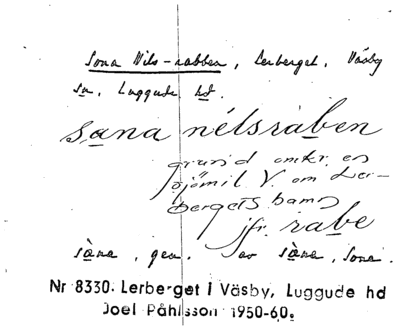 Sona Nils-rabben, Lerberget, Väsby
sn, Luggude hd.
sana nélsraben
grund omkr. en
sjömil V. om Ler-
bergets hamn
jfr. rabe
sàna, gen. av sàna, Sona.
Nr 8330. Lerberget i Väsby, Luggude hd
Joel Påhlsson 1950-60.